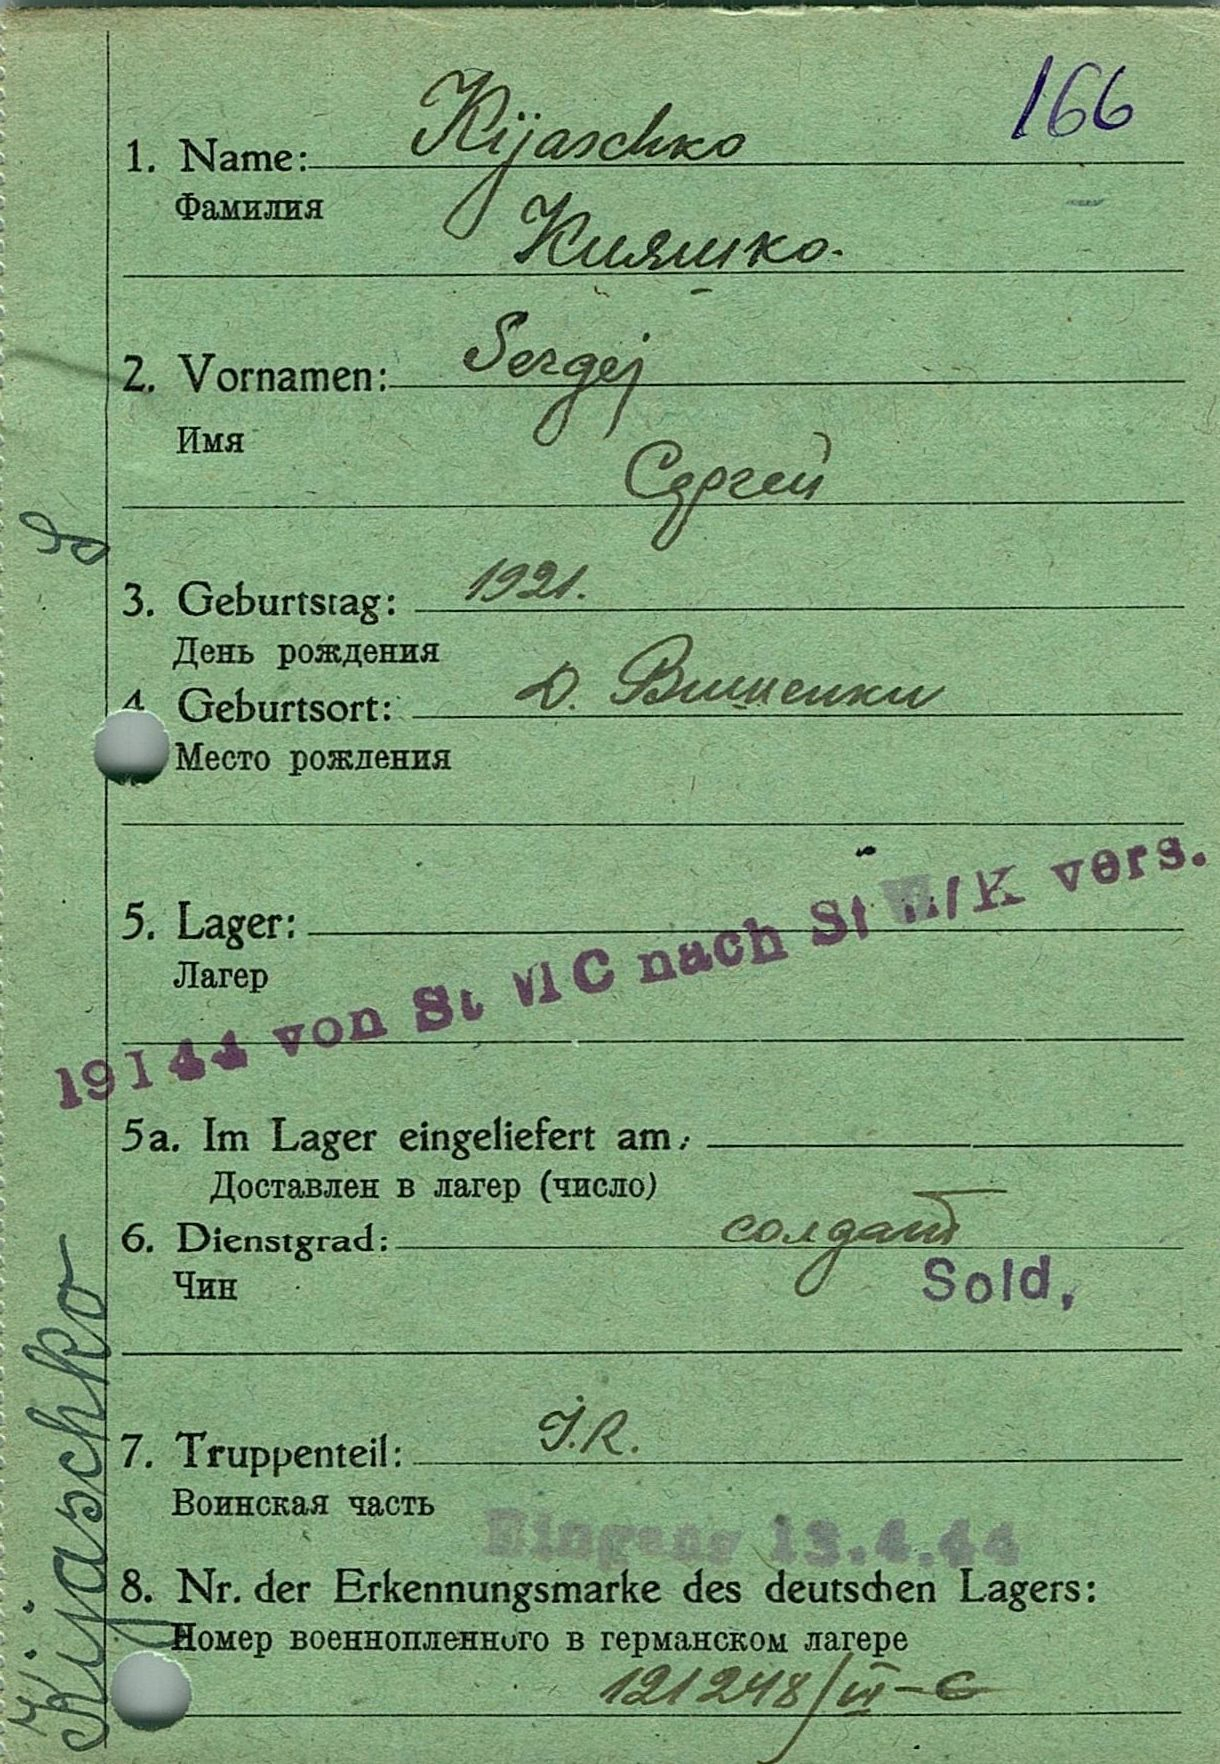 166
1. Name: Kijaschko
Фамилия
Кияшко.
2. Vornamen: Sergej
Имя
Сергей
3. Geburtstag: 1921.
День рождения
4. Geburtsort: д. Вишенки
Место рождения
5. Lager:
Лагер
19 I 44 von St VI C nach St /K vers.
5a. Im Lager eingeliefert am:
Доставлен в лагер (число)
6. Dienstgrad: солдат
Чин
Sold.
7. Truppenteil: J.R.
Воинская часть
Eingang 13.4.44
8. Nr. der Erkennungsmarke des deutschen Lagers:
Номер военнопленного в германском лагере
121248/VI-C
Kijaschko S